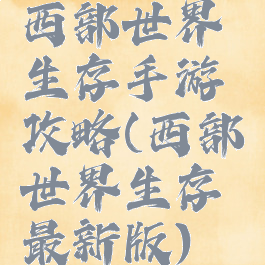 西部世界
生存手游
攻略(西部
世界生存
最新版)